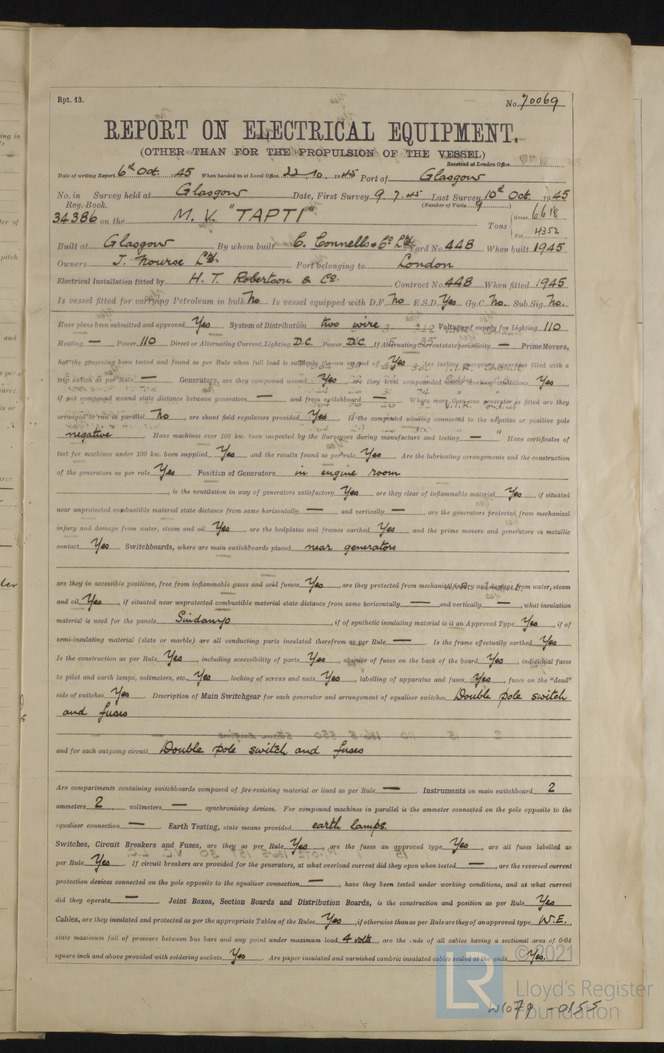 Rpt. 13.
No. 70069
REPORT ON ELECTRICAL EQUIPMENT.
(OTHER THAN FOR THE PROPULSION OF THE VESSEL)
Received at London Office
Date of writing Report 6th Oct. 1945 When handed in at Local Office 22.10.1945 Port of Glasgow
No. in Survey held at Glasgow Date, First Survey 9.7.45 Last Survey 10th Oct. 1945
Reg. Book. (Number of Visits 9)
34386 on the M.V. "TAPTI" Tons Gross 6618
Net 4352
Built at Glasgow By whom built C. Connell & Co Ltd. Yard No. 448 When built 1945
Owners J. Nourse Ltd. Port belonging to London
Electrical Installation fitted by H. T. Robertson & Co. Contract No. 448 When fitted 1945
Is vessel fitted for carrying Petroleum in bulk No Is vessel equipped with D.F. No E.S.D. Yes Gy.C. No. Sub.Sig. No.
Have plans been submitted and approved Yes System of Distribution two wire Voltage of supply for Lighting 110
Heating — Power 110 Direct or Alternating Current, Lighting D.C. Power D.C. If Alternating Current state periodicity — Prime Movers,
has the governing been tested and found as per Rule when full load is suddenly thrown on and off Yes Are turbine emergency governors fitted with a
trip switch as per Rule — Generators, are they compound wound Yes, are they level compounded under working conditions Yes
if not compound wound state distance between generators — and from switchboard — Where more than one generator is fitted are they
arranged to run in parallel No, are shunt field regulators provided Yes Is the compound winding connected to the negative or positive pole
negative Have machines over 100 kw. been inspected by the Surveyors during manufacture and testing — Have certificates of
test for machines under 100 kw. been supplied Yes and the results found as per rule Yes Are the lubricating arrangements and the construction
of the generators as per rule Yes Position of Generators in engine room
, is the ventilation in way of generators satisfactory Yes, are they clear of inflammable material Yes, if situated
near unprotected combustible material state distance from same horizontally — and vertically —, are the generators protected from mechanical
injury and damage from water, steam and oil Yes, are the bedplates and frames earthed Yes and the prime movers and generators in metallic
contact Yes Switchboards, where are main switchboards placed near generators
are they in accessible positions, free from inflammable gases and acid fumes Yes, are they protected from mechanical injury and damage from water, steam
and oil Yes, if situated near unprotected combustible material state distance from same horizontally — and vertically —, what insulation
material is used for the panels Sindanyo, if of synthetic insulating material is it an Approved Type Yes, if of
semi-insulating material (slate or marble) are all conducting parts insulated therefrom as per Rule — Is the frame effectually earthed Yes
Is the construction as per Rule Yes, including accessibility of parts Yes, absence of fuses on the back of the board Yes, individual fuses
to pilot and earth lamps, voltmeters, etc. Yes, locking of screws and nuts Yes, labelling of apparatus and fuses Yes, fuses on the "dead"
side of switches Yes. Description of Main Switchgear for each generator and arrangement of equaliser switches Double pole switch
and fuses
and for each outgoing circuit Double pole switch and fuses
Are compartments containing switchboards composed of fire-resisting material or lined as per Rule — Instruments on main switchboard 2
ammeters 2 voltmeters — synchronising devices. For compound machines in parallel is the ammeter connected on the pole opposite to the
equaliser connection — Earth Testing, state means provided earth lamps.
Switches, Circuit Breakers and Fuses, are they as per Rule Yes, are the fuses an approved type Yes, are all fuses labelled as
per Rule Yes If circuit breakers are provided for the generators, at what overload current did they open when tested —, are the reversed current
protection devices connected on the pole opposite to the equaliser connection —, have they been tested under working conditions, and at what current
did they operate — Joint Boxes, Section Boards and Distribution Boards, is the construction and position as per Rule Yes
Cables, are they insulated and protected as per the appropriate Tables of the Rules Yes, if otherwise than as per Rule are they of an approved type W.E.
state maximum fall of pressure between bus bars and any point under maximum load 4 volts, are the ends of all cables having a sectional area of 0.04
square inch and above provided with soldering sockets Yes. Are paper insulated and varnished cambric insulated cables sealed at the ends Yes.
© 2021
LR
Lloyd's Register
Foundation
W1079-0155